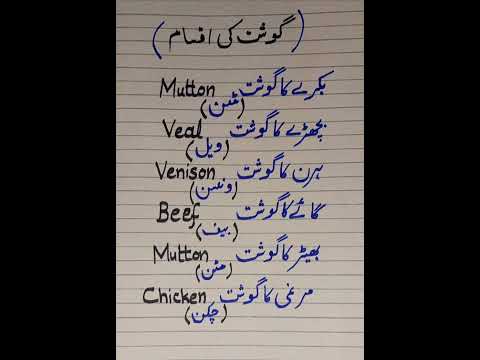 (گوشت کی اقسام)
بکرے کا گوشت Mutton
(مٹن)
بچھڑے کا گوشت Veal
(ویل)
ہرن کا گوشت Venison
(ونسن)
گائے کا گوشت Beef
(بیف)
بھیڑ کا گوشت Mutton
(مٹن)
مرغی کا گوشت Chicken
(چکن)